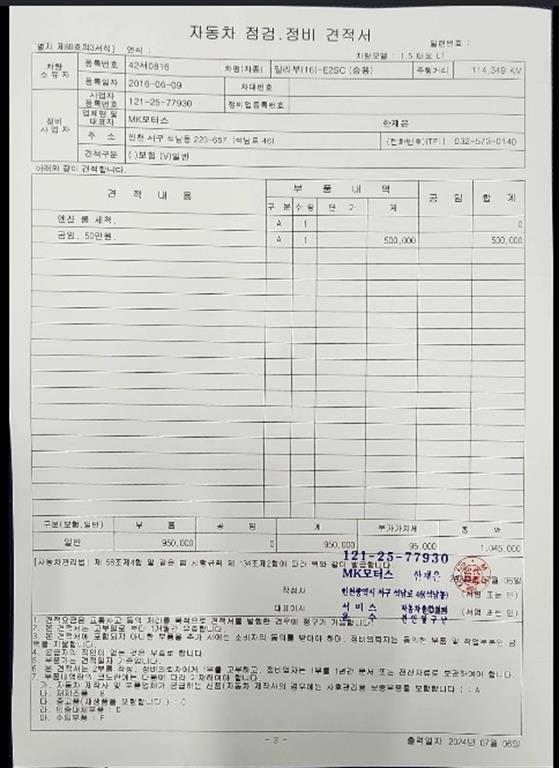 자동차 점검.정비 견적서
별지 제89호의3서식] 연식 : 일련번호 :
차량모델 : 1.5 터보 LT
차량 소유자 등록번호 42서0816 차명(차종) 말리부(16)-E2SC (승용) 주행거리 114,349 KM
등록일자 2016-06-09 차대번호
정비 사업자 사업자 등록번호 121-25-77930 정비업등록번호
업체명 및 대표자 MK모터스 한재은
주 소 인천 서구 석남동 223-657 (석남로 46) (전화번호)(TEL) 032-573-0140
견적구분 ( )보험 (V)일반
아래와 같이 견적합니다.
견 적 내 용 부 품 내 역 공 임 합 계
구 분 수 량 단 가 계
엔진 룸 세척. A 1 0
공임. 50만원. A 1 500,000 500,000
구분(보험,일반) 부 품 공 임 계 부가가치세 총 액
일반 950,000 0 950,000 95,000 1,045,000
[자동차관리법] 제 58조제4항 및 같은 법 시행규칙 제 134조제2항에 따라 위와 같이 발급합니다.
121-25-77930
MK모터스 한재은
07월 06일
작성자 인천광역시 서구 석남로 46(석남동) (서명 또는 인)
대표이사 서비스 (서명 또는 인)
1. 견적요금은 교통사고 등의 처리를 목적으로 견적서를 발행한 경우에 청구가 가능합니다.
2. 본 견적서는 교부일로 부터 1개월간 유효합니다.
3. 본 견적서에 포함되지 아니한 부품을 추가 시에는 소비자의 동의를 받아야 하며, 정비의뢰자는 동의한 부품 및 작업부분만 금액을 지불합니다.
4. 공급자의 직인이 없는 것은 무효로 합니다.
5. 부품가는 견적일자 기준입니다.
6. 본 견적서는 2부를 작성, 정비의뢰자에게 1부를 교부하고, 정비업자는 1부를 1년간 문서 또는 전산자료로 보관하여야 합니다.
7. 부품내역란의 코드란에는 다음에 따라 기재하여야 합니다.
가. 자동차 제작사 및 부품업체가 공급하는 신품(자동차 제작사의 경우에는 사후관리용 보증부품을 포함합니다.) : A
나. 재제조품 : B
다. 중고품(재생품을 포함합니다.) : C
라. 인증대체부품 : D
마. 수입부품 : F
- 2 -
출력일자 2024년 07월 06일